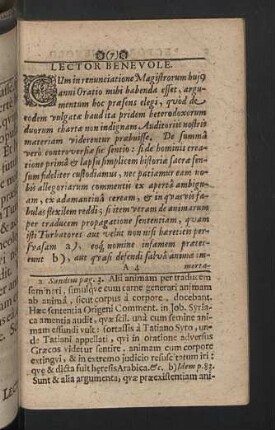 LECTOR BENEVOLE.
CUm in renunciatione Magistrorum hujꝰ
anni Oratio mihi habenda esset, argu-
mentum hoc præsens elegi, quòd de
eodem vulgatæ haud ita pridem heterodoxorum
duorum chartæ non indignam Auditoriis nostris
materiam viderentur præbuisse. De summâ
verò controversiæ sic sentio: si de hominis crea-
tione primâ & lapsu simplicem historiæ sacræ sen-
sum fideliter custodiamus, nec patiamur eam no-
bis allegoriarum commentis ex apertâ ambigu-
am, ex adamantinâ ceream, & in quasvis fa-
bulas flexilem reddi; si item veram de animarum
per traducem propagatione sententiam, quam
isti Turbatores aut velut non nisi hæreticis per-
svasam a), eoq́ nomine infamem præte-
reunt b), aut quasi defendi salvâ animæ im-
A 4 morta-
a Sandius pag. 3. Alii animam per traducem
seminari, simulque cum carne generari animam
ab animâ, sicut corpus à corpore, docebant.
Hæc sententia Origeni Comment. in Job. Syria-
ca amentia audit, quæ scil. unâ cum semine ani-
mam effundi vult: fortassis à Tatiano Syro, un-
de Tatiani appellati, qui in oratione adversus
Græcos videtur sentire, animam cum corpore
extingvi, & in extremo judicio resuscitatum iri:
quæ & dicta fuit hæresis Arabica. &c. b) Idem p. 83.
Sunt & alia argumenta, quæ præexistentiam ani-